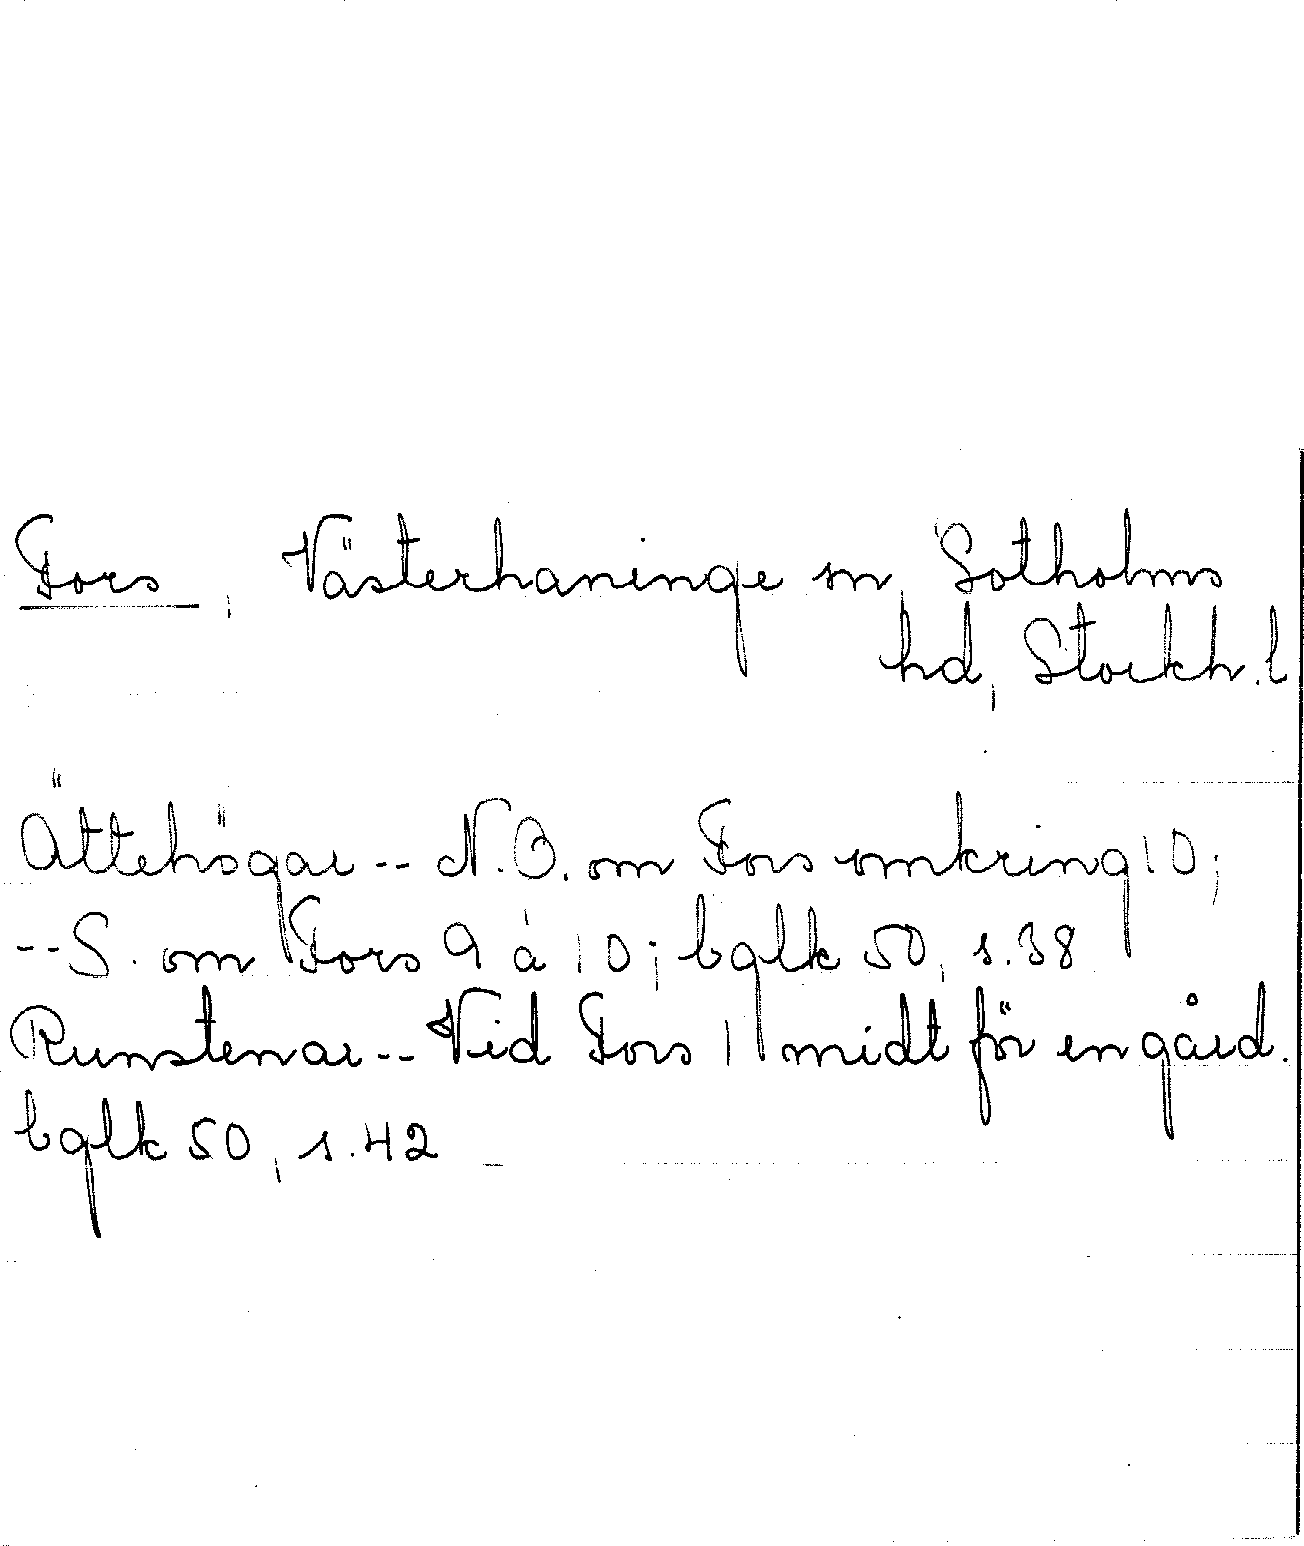 Fors, Västerhaninge sn, Sotholms
hd, Stockh. l
Ättehögar -- N.O. om Fors omkring 10;
-- S. om Fors 9 à 10; bglk 50, s. 38
Runstenar -- Vid Fors 1 midt för en gård.
bglk 50, s. 42